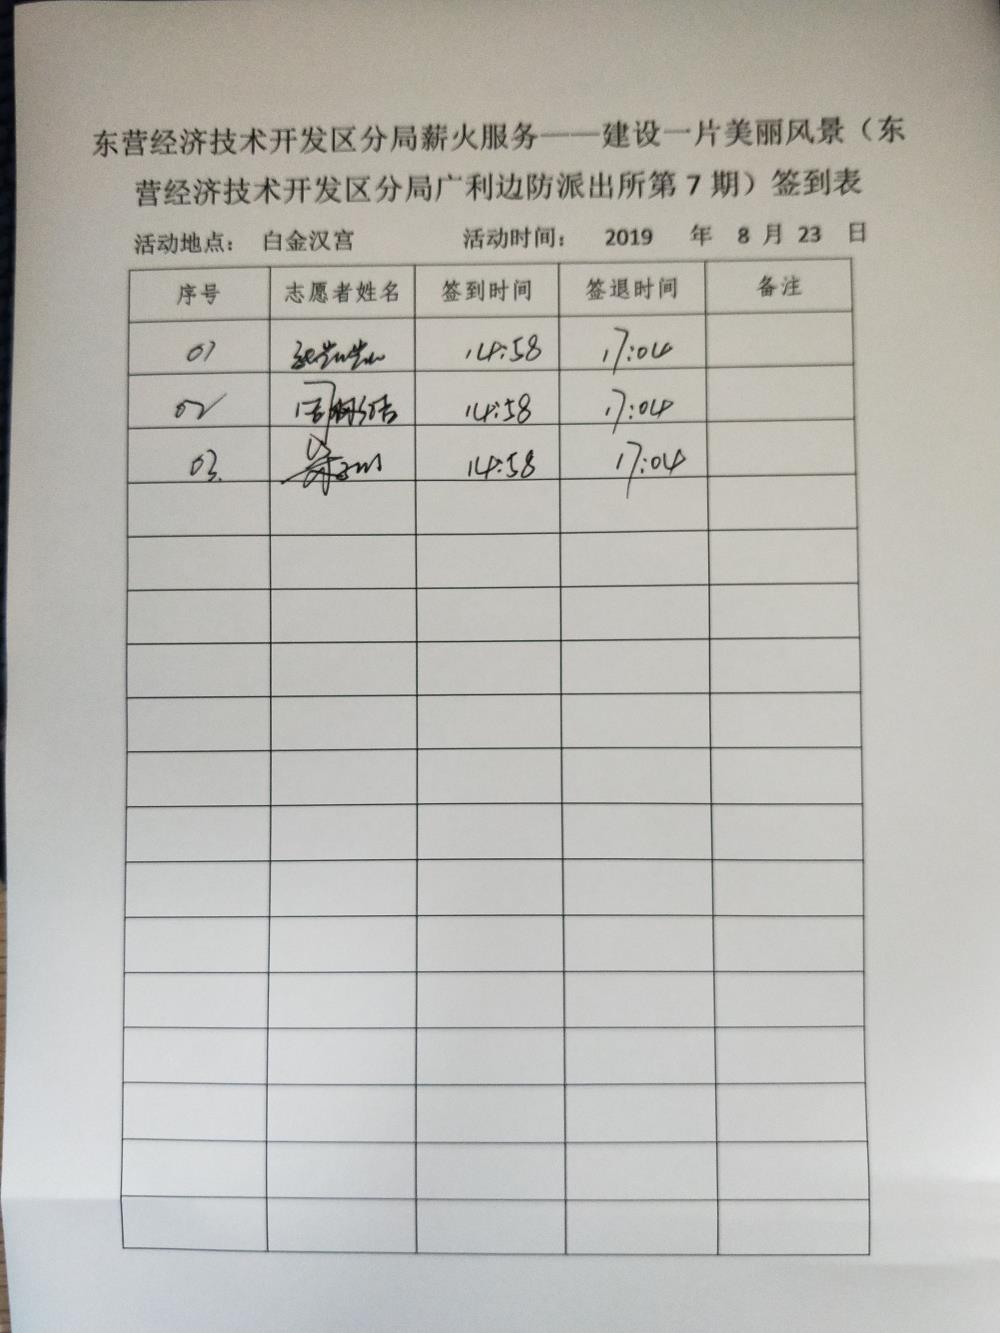 东营经济技术开发区分局薪火服务——建设一片美丽风景（东
营经济技术开发区分局广利边防派出所第 7 期）签到表
活动地点： 白金汉宫 活动时间： 2019 年 8 月 23 日
序号 志愿者姓名 签到时间 签退时间 备注
01 14:58 17:04
02 14:58 17:04
03. 14:58 17:04